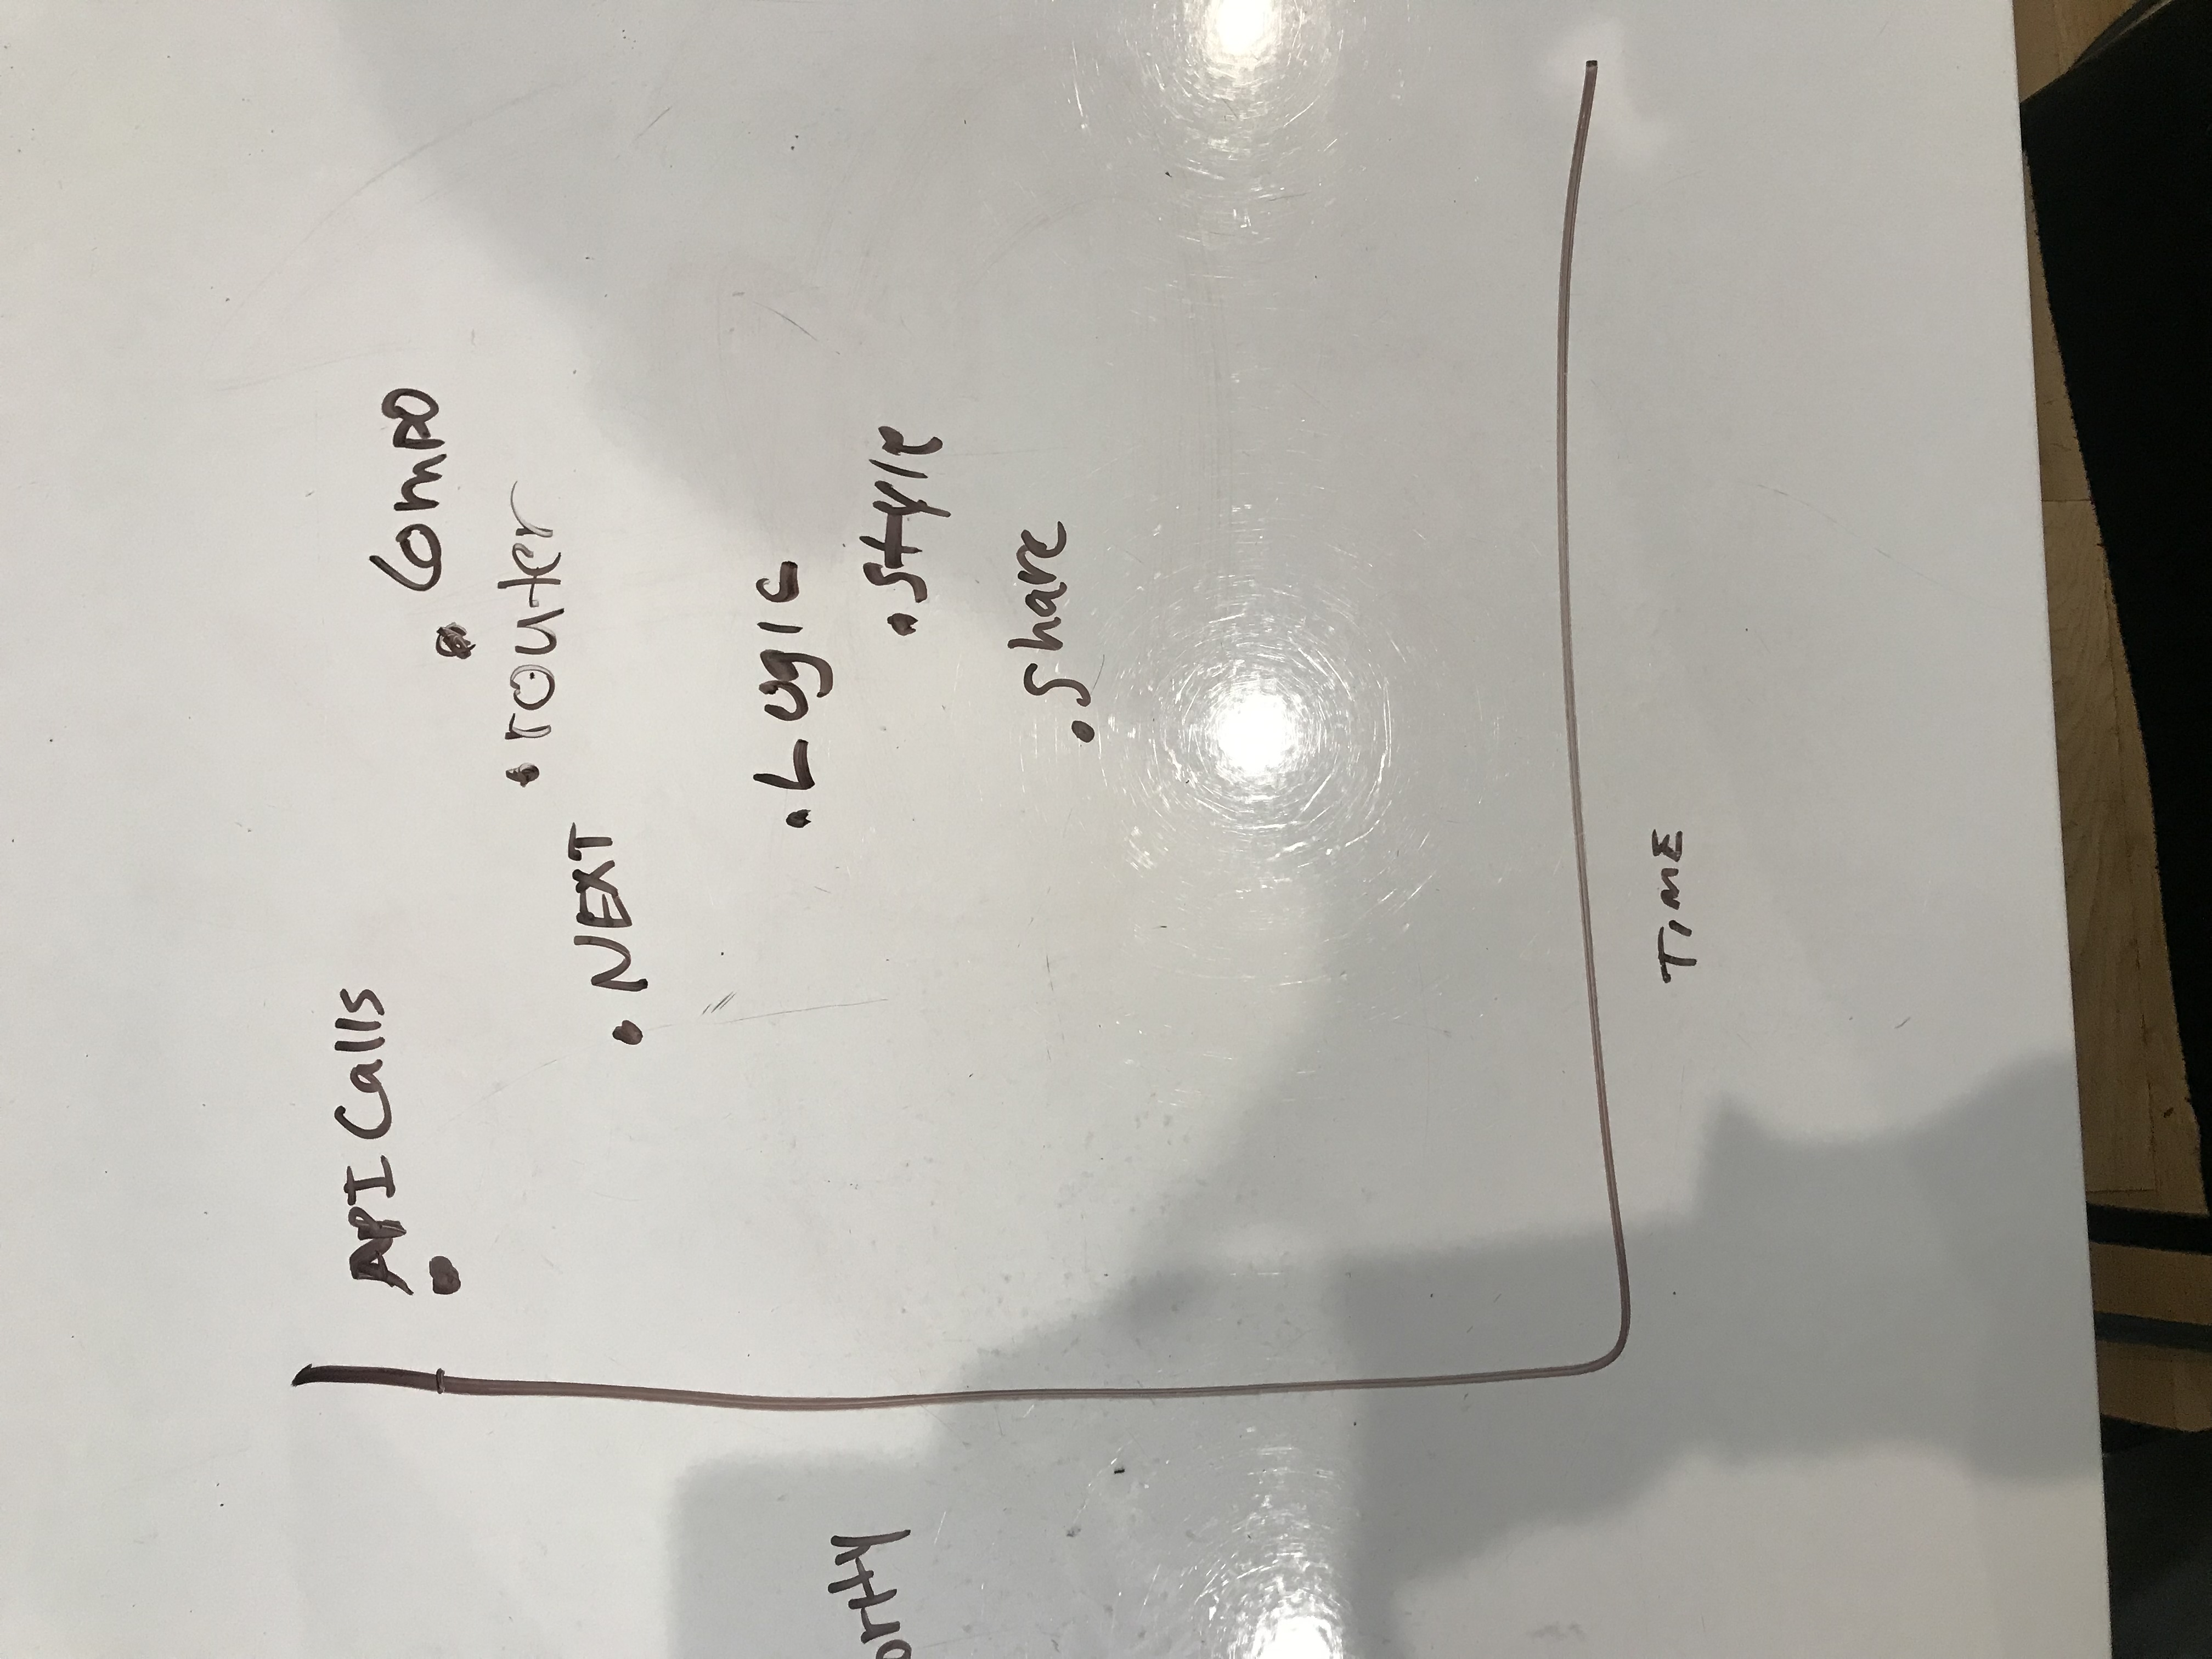 API Calls
Compo
router
NEXT
Logic
style
share
ority
TIME